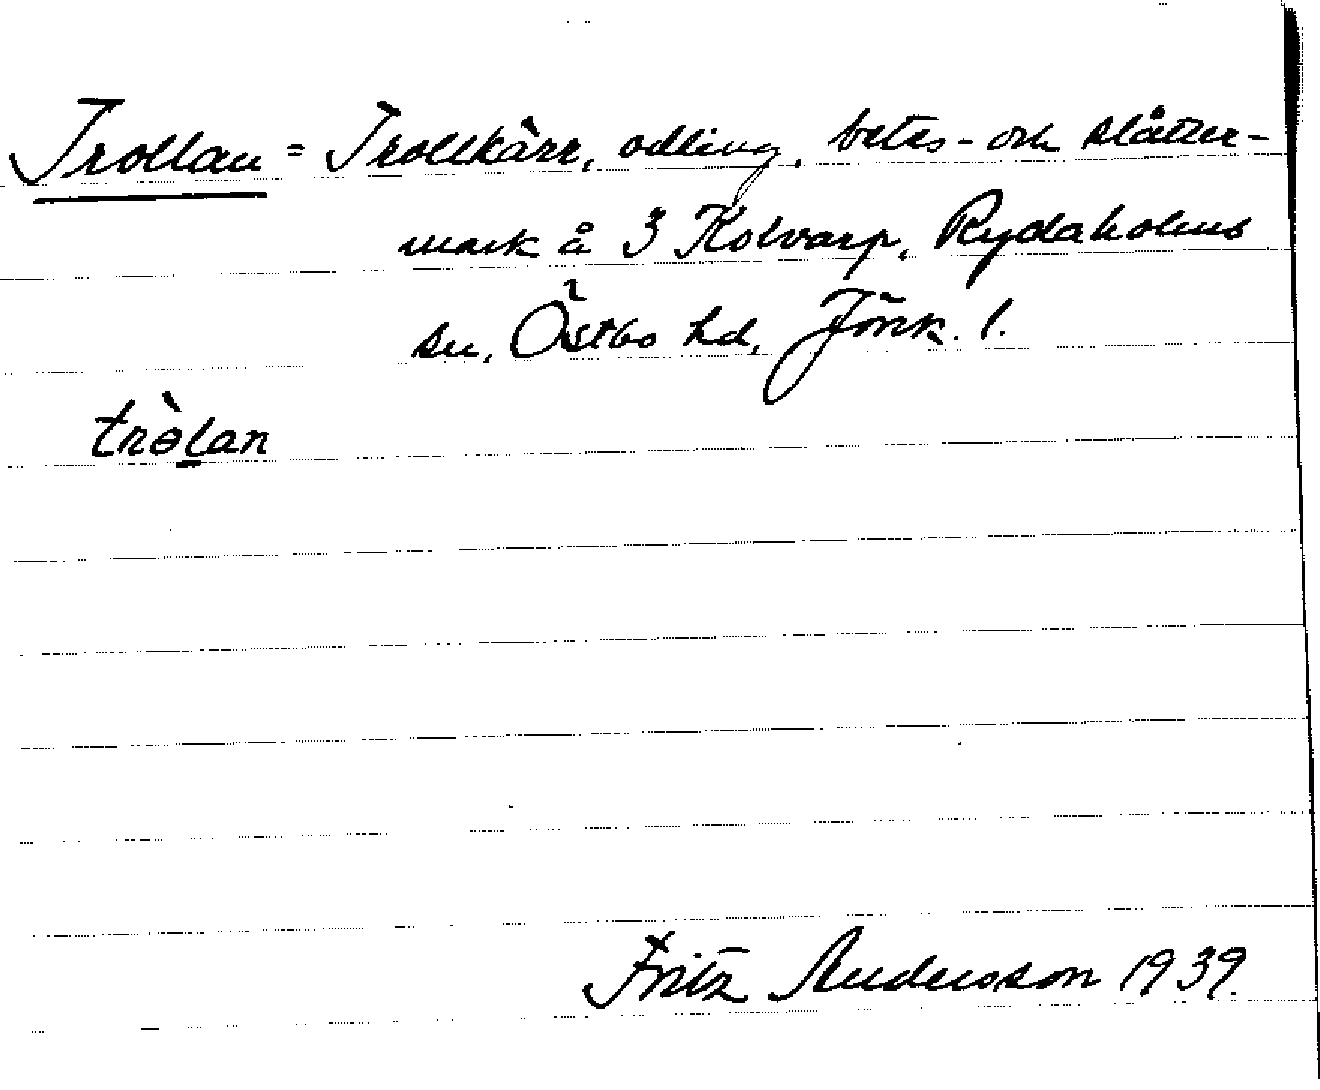 Trollan = Trollkärr, odling, betes- och slåtter-
mark å 3 Kolvarp, Rydaholms
sn, Östbo hd, Jönk. l.
tròlan
Fritz Andersson 1939.